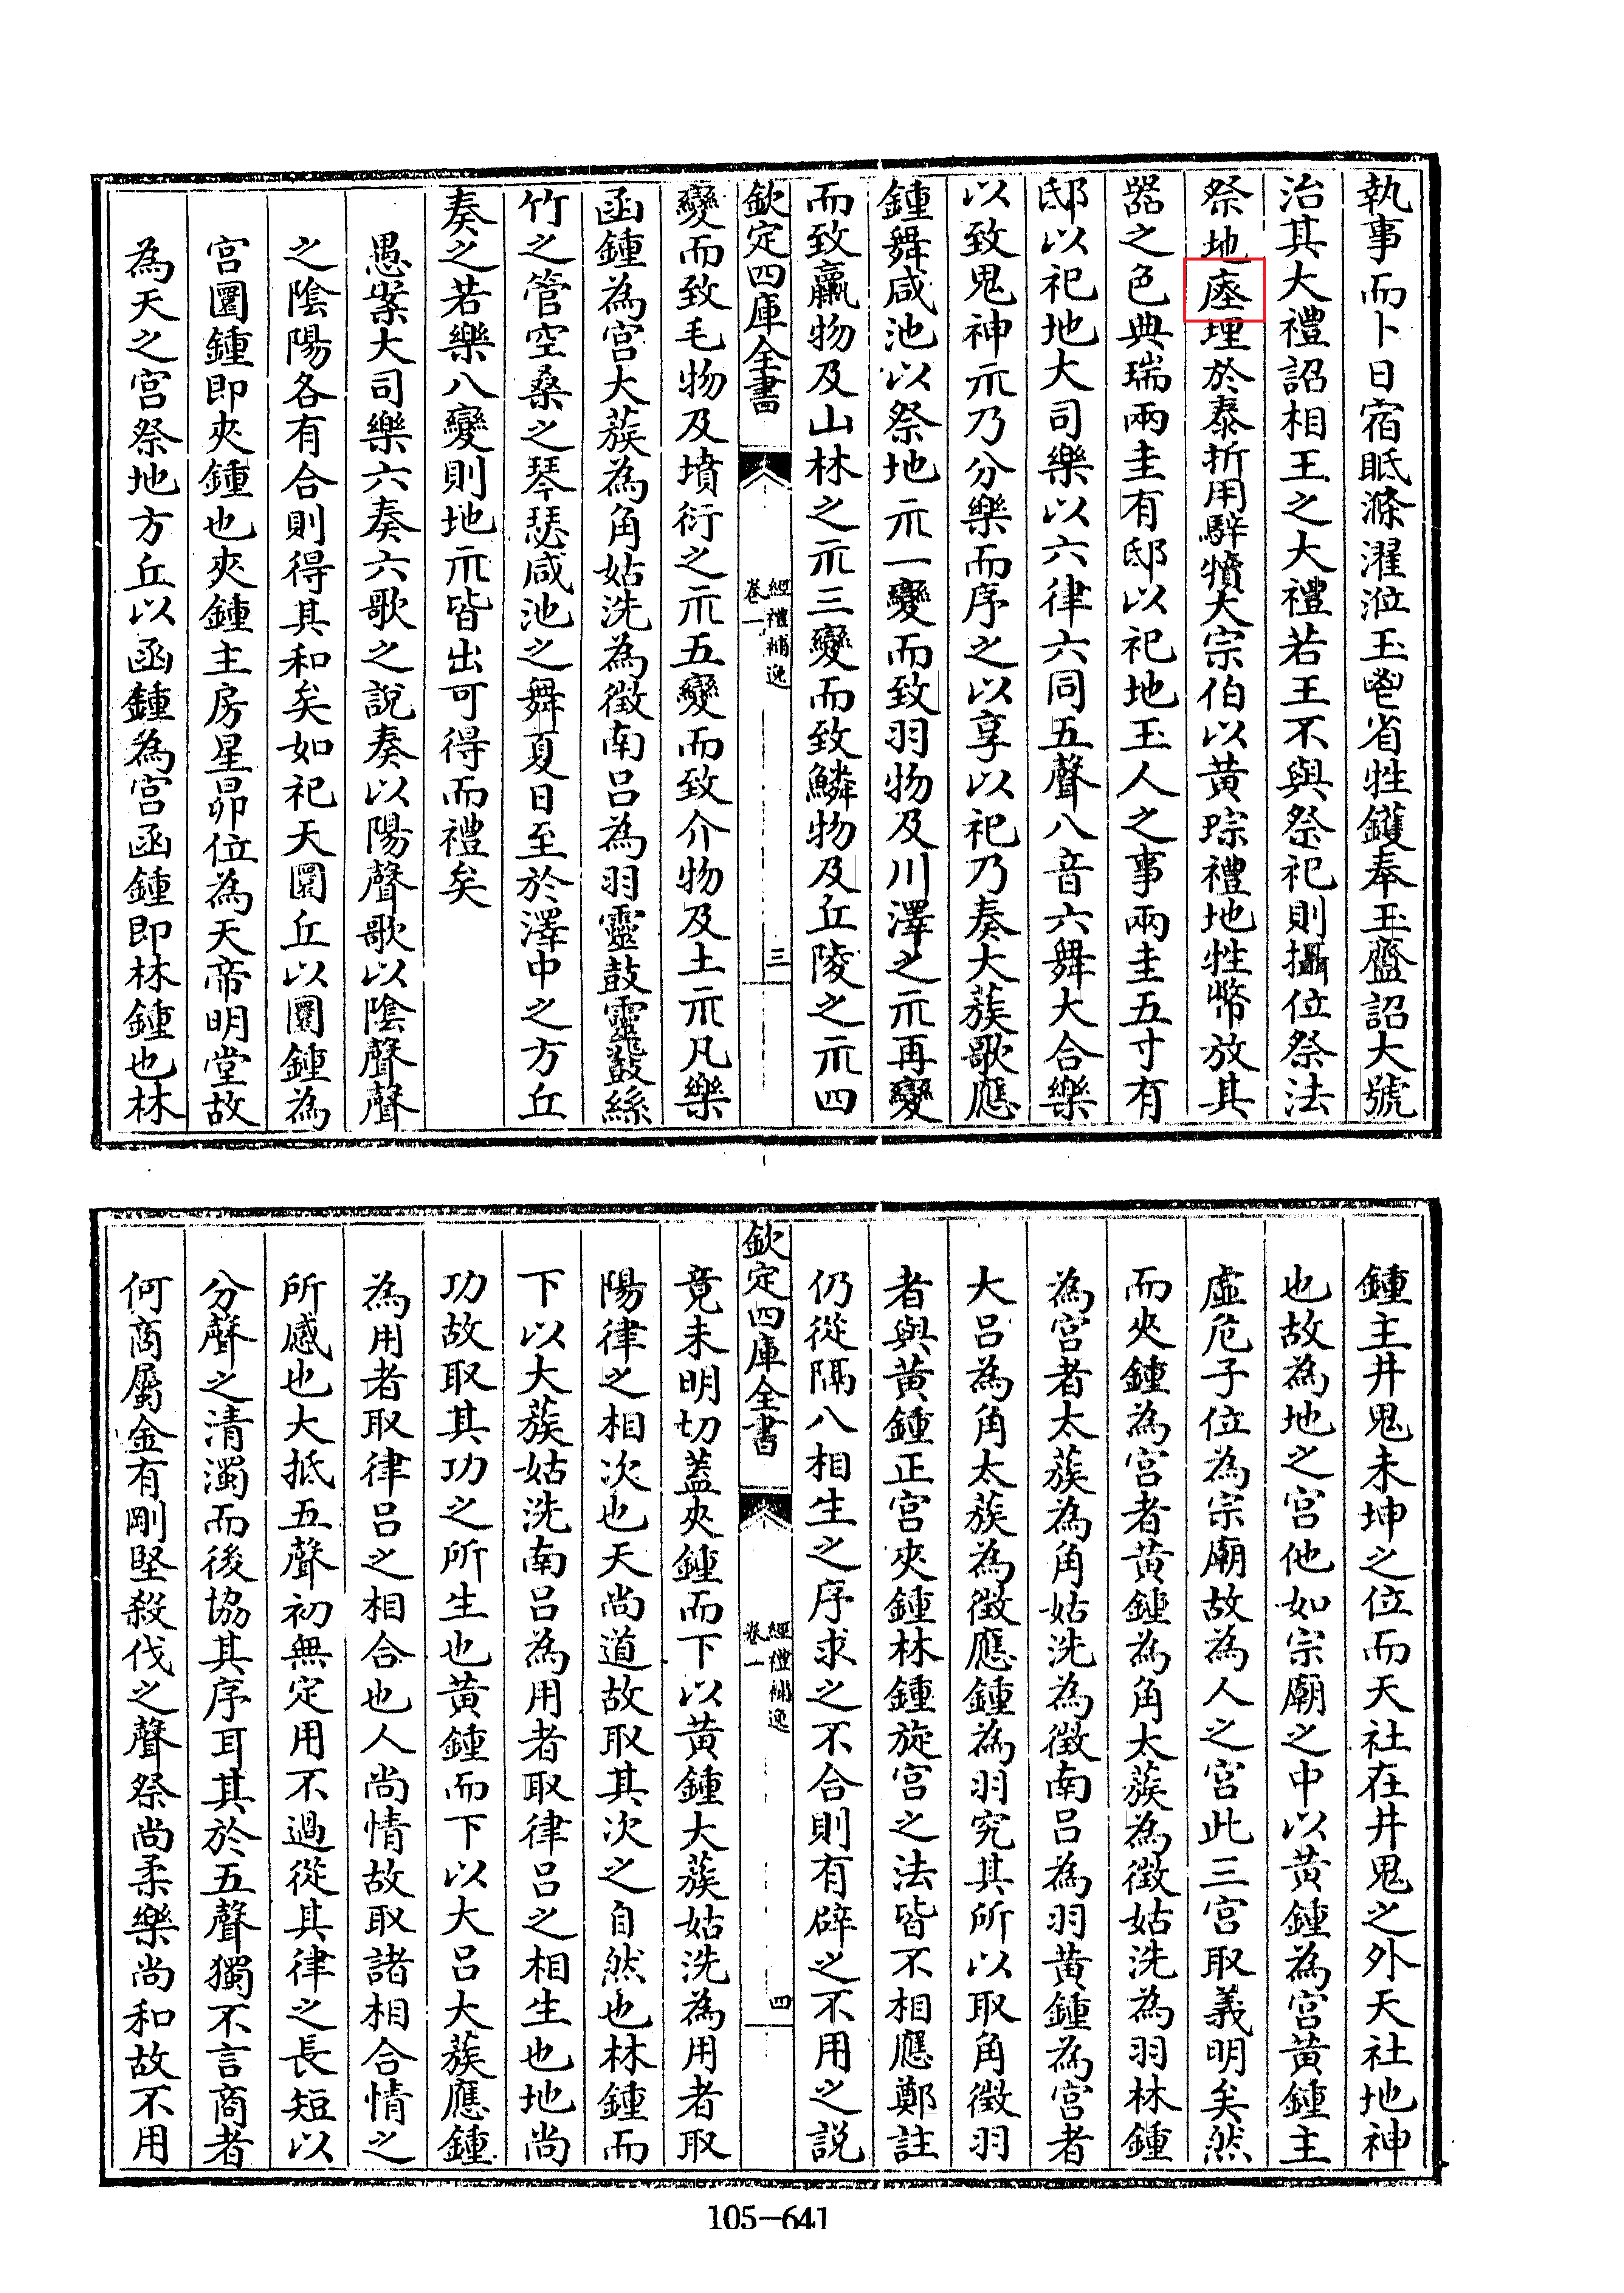 執事而卜日宿眡滌濯涖玉鬯省牲鑊奉玉齍詔大號
治其大禮詔相王之大禮若王不與祭祀則攝位祭法
祭地㘸埋於泰折用騂犢大宗伯以黄琮禮地牲幣放其
器之色典瑞兩圭有邸以祀地玉人之事兩圭五寸有
邸以祀地大司樂以六律六同五聲八音六舞大合樂
以致鬼神示乃分樂而序之以享以祀乃奏大蔟歌應
鍾舞咸池以祭地示一變而致羽物及川澤之示再變
而致臝物及山林之示三變而致鱗物及丘陵之示四
欽定四庫全書
經禮補逸
卷一
三
變而致毛物及墳衍之示五變而致介物及土示凡樂
函鍾為宮大蔟為角姑洗為徵南吕為羽靈鼓靈鼗絲
竹之管空桑之琴瑟咸池之舞夏日至於澤中之方丘
奏之若樂八變則地示皆出可得而禮矣
愚案大司樂六奏六歌之說奏以陽聲歌以陰聲聲
之陰陽各有合則得其和矣如祀天圜丘以圜鍾為
宮圜鍾即夾鍾也夾鍾主房星昴位為天帝明堂故
為天之宮祭地方丘以函鍾為宮函鍾即林鍾也林
鍾主井鬼未坤之位而天社在井鬼之外天社地神
也故為地之宮他如宗廟之中以黄鍾為宮黄鍾主
虛危子位為宗廟故為人之宮此三宮取義明矣然
而夾鍾為宮者黄鍾為角太蔟為徵姑洗為羽林鍾
為宮者太蔟為角姑洗為徵南吕為羽黄鍾為宮者
大吕為角太蔟為徵應鍾為羽究其所以取角徵羽
者與黄鍾正宮夾鍾林鍾旋宮之法皆不相應鄭註
仍從隔八相生之序求之不合則有辟之不用之説
欽定四庫全書
經禮補逸
卷一
四
竟未明切蓋夾鍾而下以黄鍾大蔟姑洗為用者取
陽律之相次也天尚道故取其次之自然也林鍾而
下以大蔟姑洗南吕為用者取律吕之相生也地尚
功故取其功之所生也黄鍾而下以大吕大蔟應鍾
為用者取律吕之相合也人尚情故取諸相合情之
所感也大抵五聲初無定用不過從其律之長短以
分聲之清濁而後協其序耳其於五聲獨不言商者
何商屬金有剛堅殺伐之聲祭尚柔樂尚和故不用
105-641